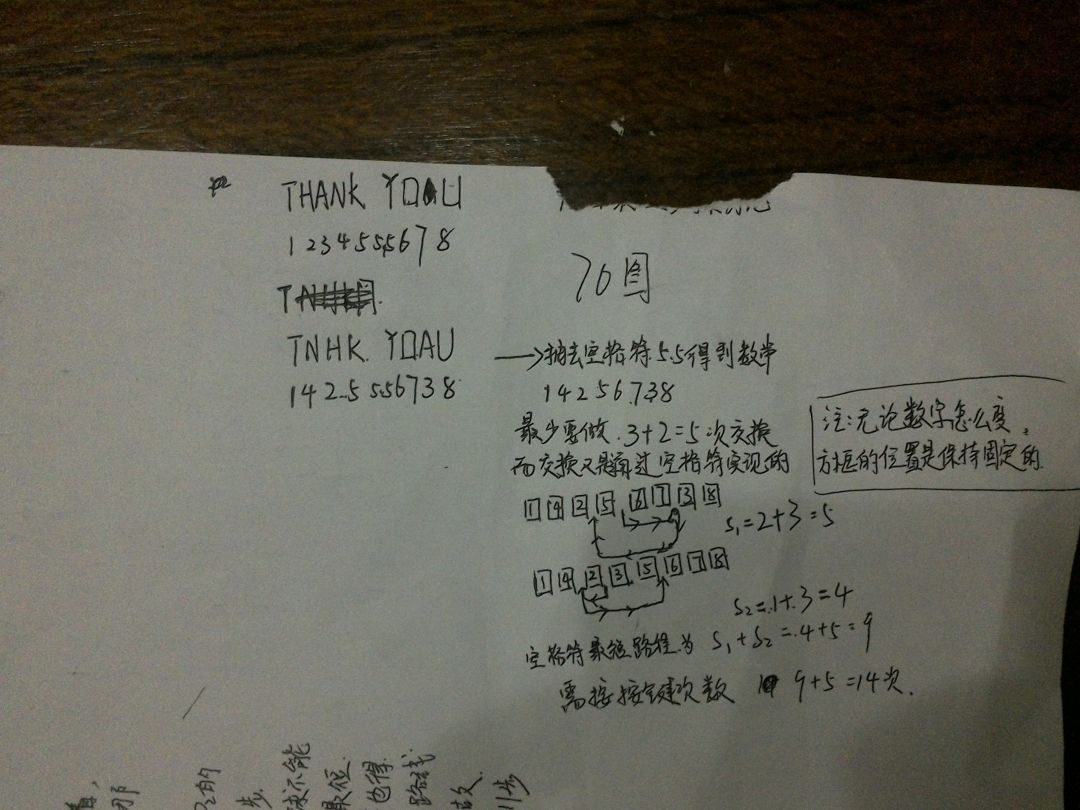 THANK YOAU
1 2 3 4 5 5.5 6 7 8
TNHK YOAU
1 4 2 5 5.5 6 7 3 8
70图
→抽去空格符5.5得到数串
1 4 2 5 6 7 3 8
最少要做 3+2=5次交换
而交换又是通过空格符实现的
注:无论数字怎么变,
方框的位置是保持固定的
1 4 2 5 6 7 3 8
S₁=2+3=5
1 4 2 3 5 6 7 8
S₂=1+3=4
空格符最短路程为 S₁+S₂=4+5=9
需按按键次数 9+5=14次.